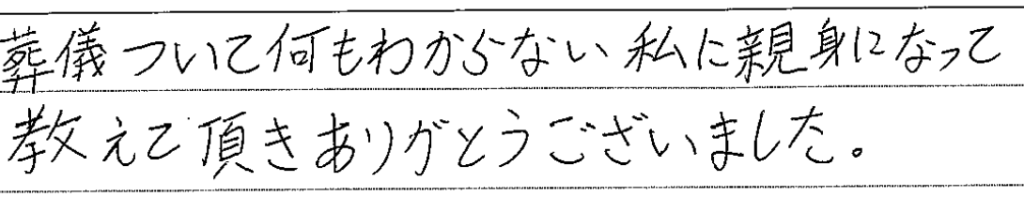 葬儀ついて何もわからない私に親身になって
教えて頂きありがとうございました。